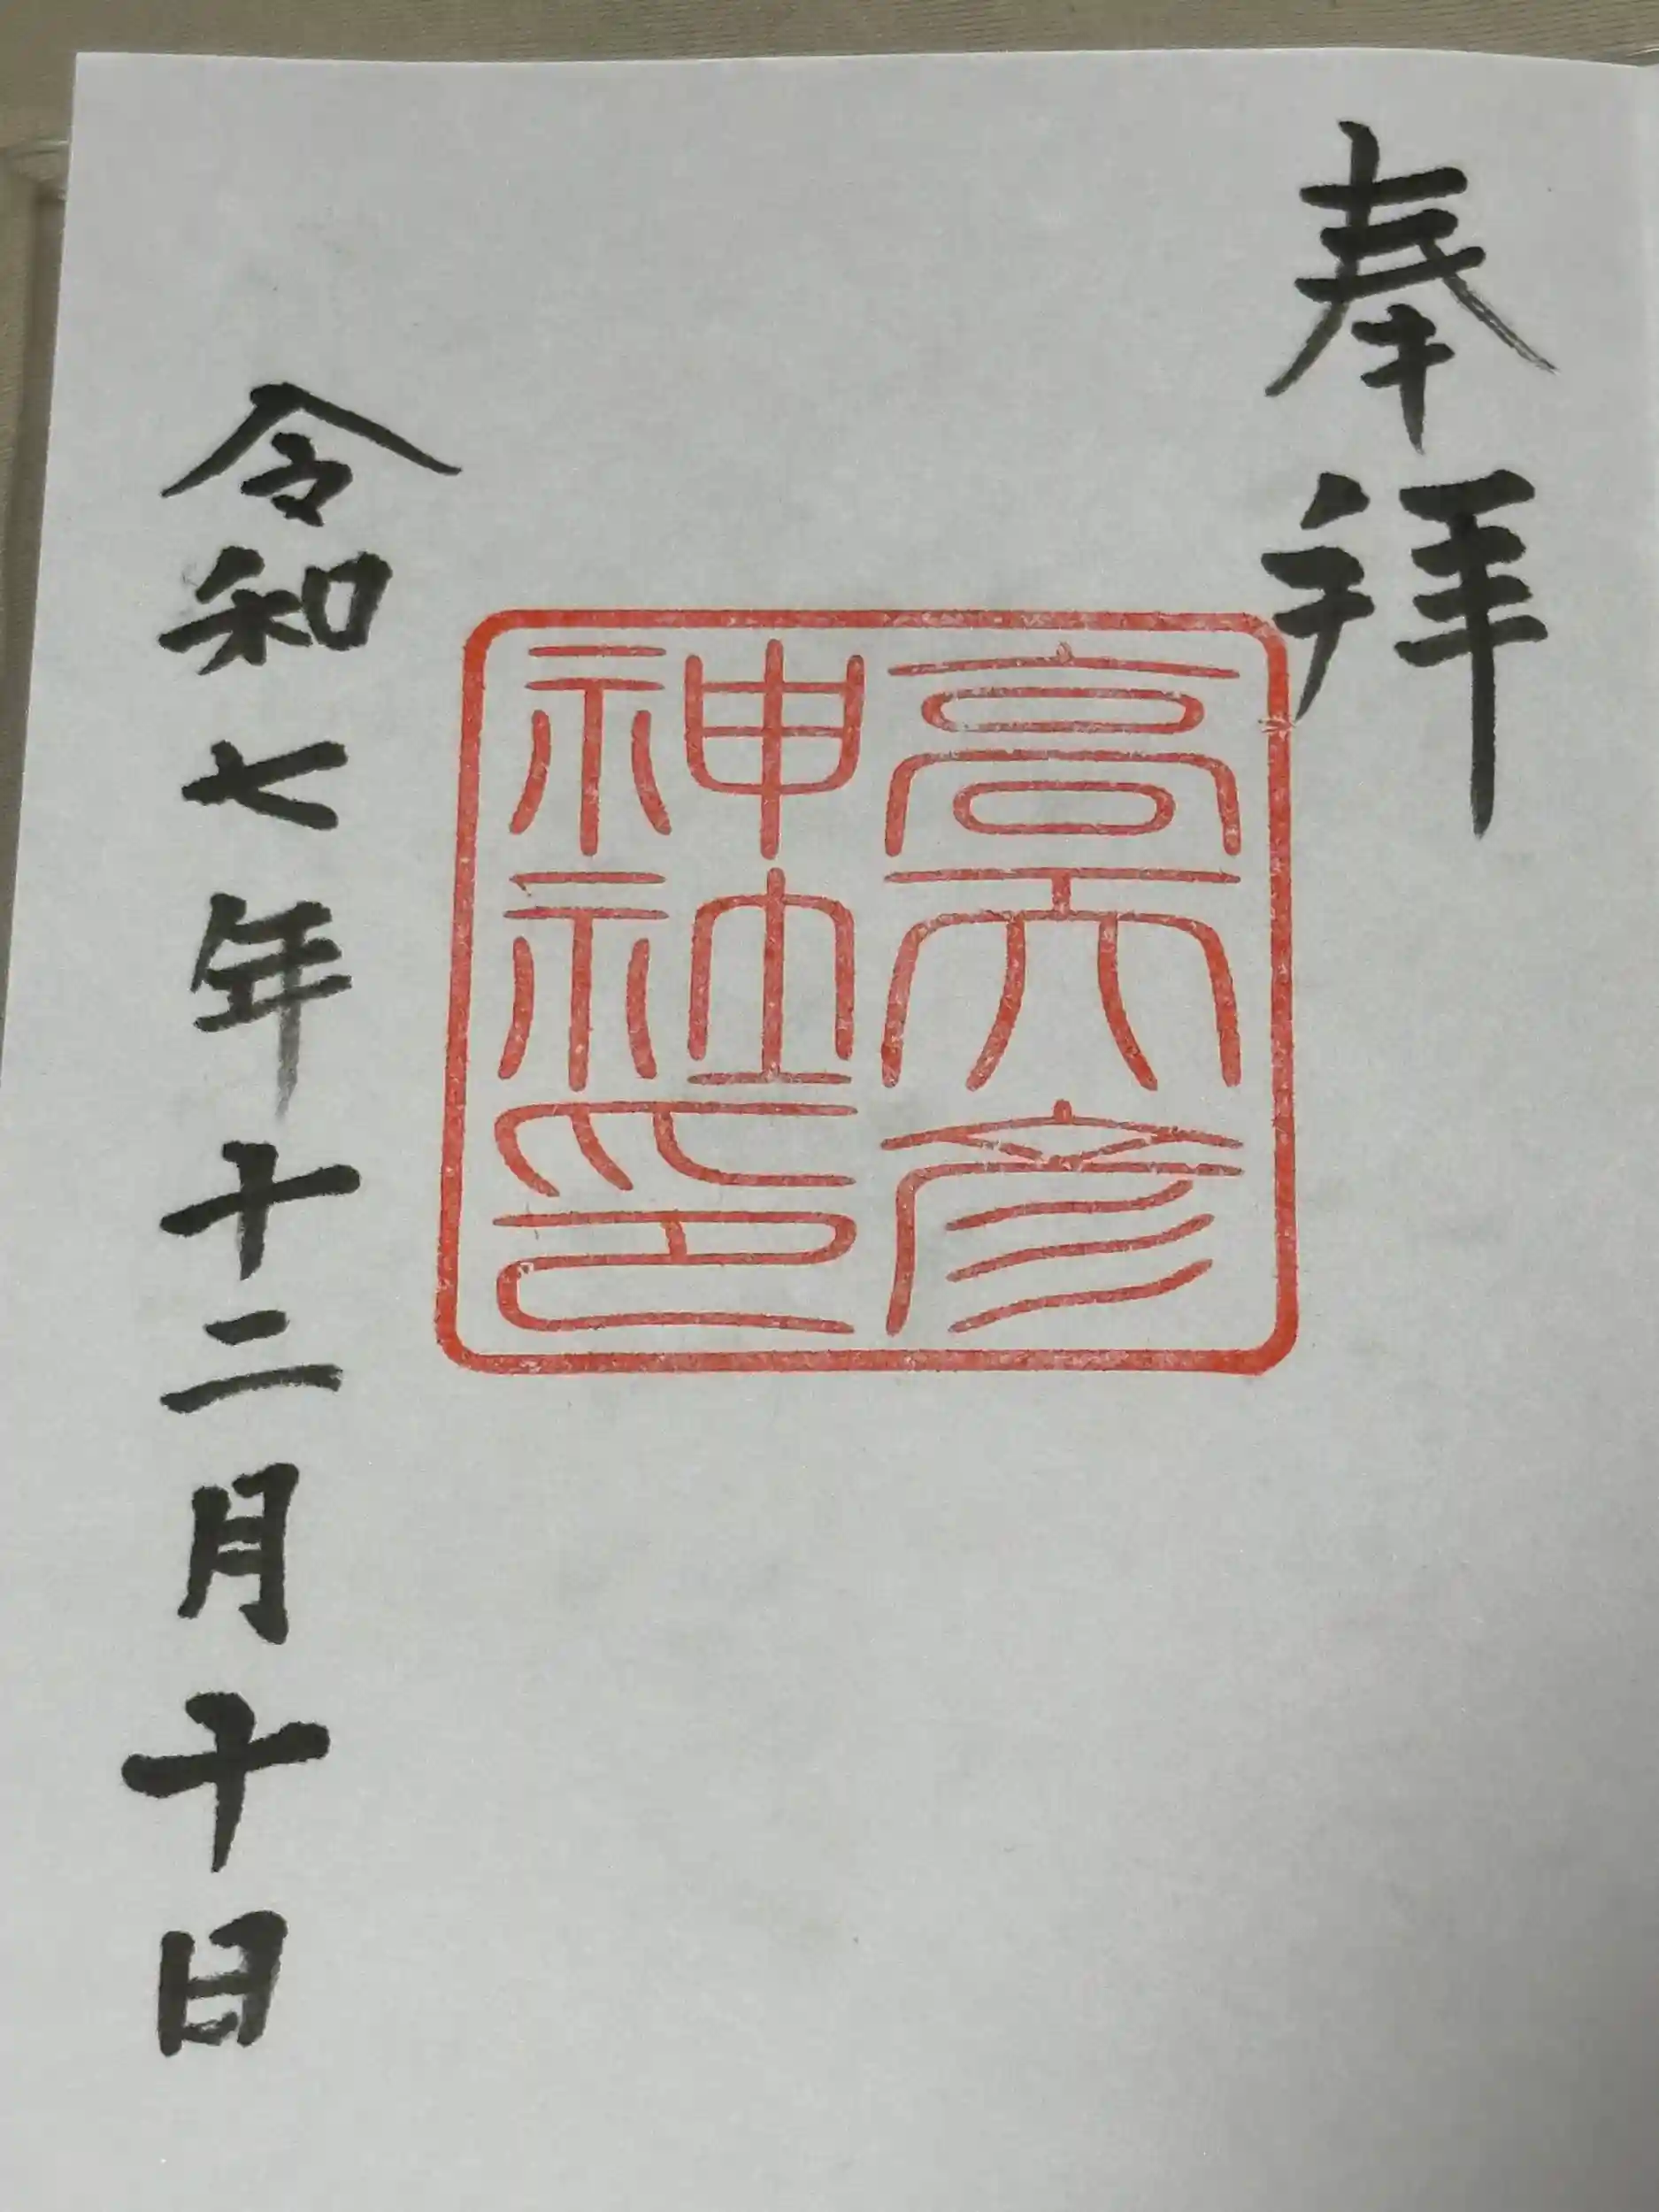 奉拝
高天彦
神社印
令和七年十二月十日